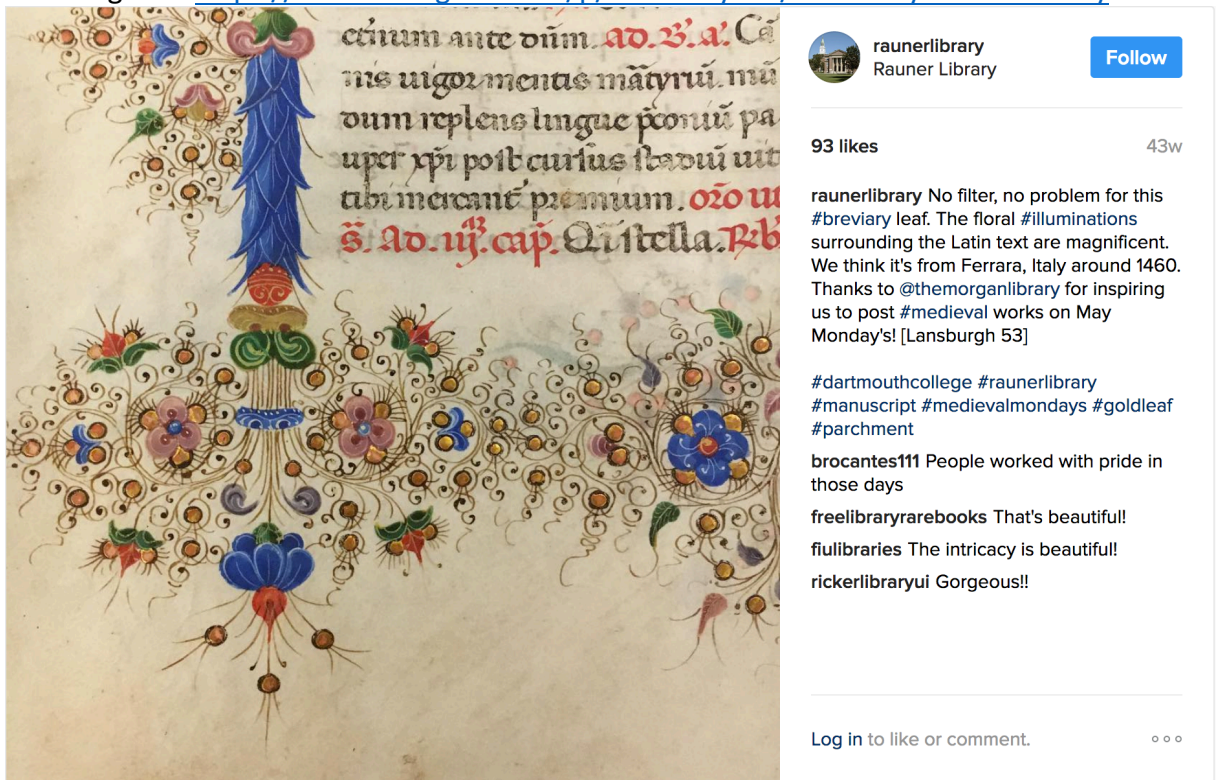 ante dūm. ad. B. a. Ca
nis uigor mentis mātyrū. mū
dum replens lingue p̄coniū pa
uper xp̄i post cursus stadiū uit
tibi premium. oro ut
s. Ad. iij. cap. Qi stella. Rb
raunerlibrary
Rauner Library
Follow
93 likes 43w
raunerlibrary No filter, no problem for this
#breviary leaf. The floral #illuminations
surrounding the Latin text are magnificent.
We think it's from Ferrara, Italy around 1460.
Thanks to @themorganlibrary for inspiring
us to post #medieval works on May
Monday's! [Lansburgh 53]
#dartmouthcollege #raunerlibrary
#manuscript #medievalmondays #goldleaf
#parchment
brocantes111 People worked with pride in
those days
freelibraryrarebooks That's beautiful!
fiulibraries The intricacy is beautiful!
rickerlibraryui Gorgeous!!
Log in to like or comment.